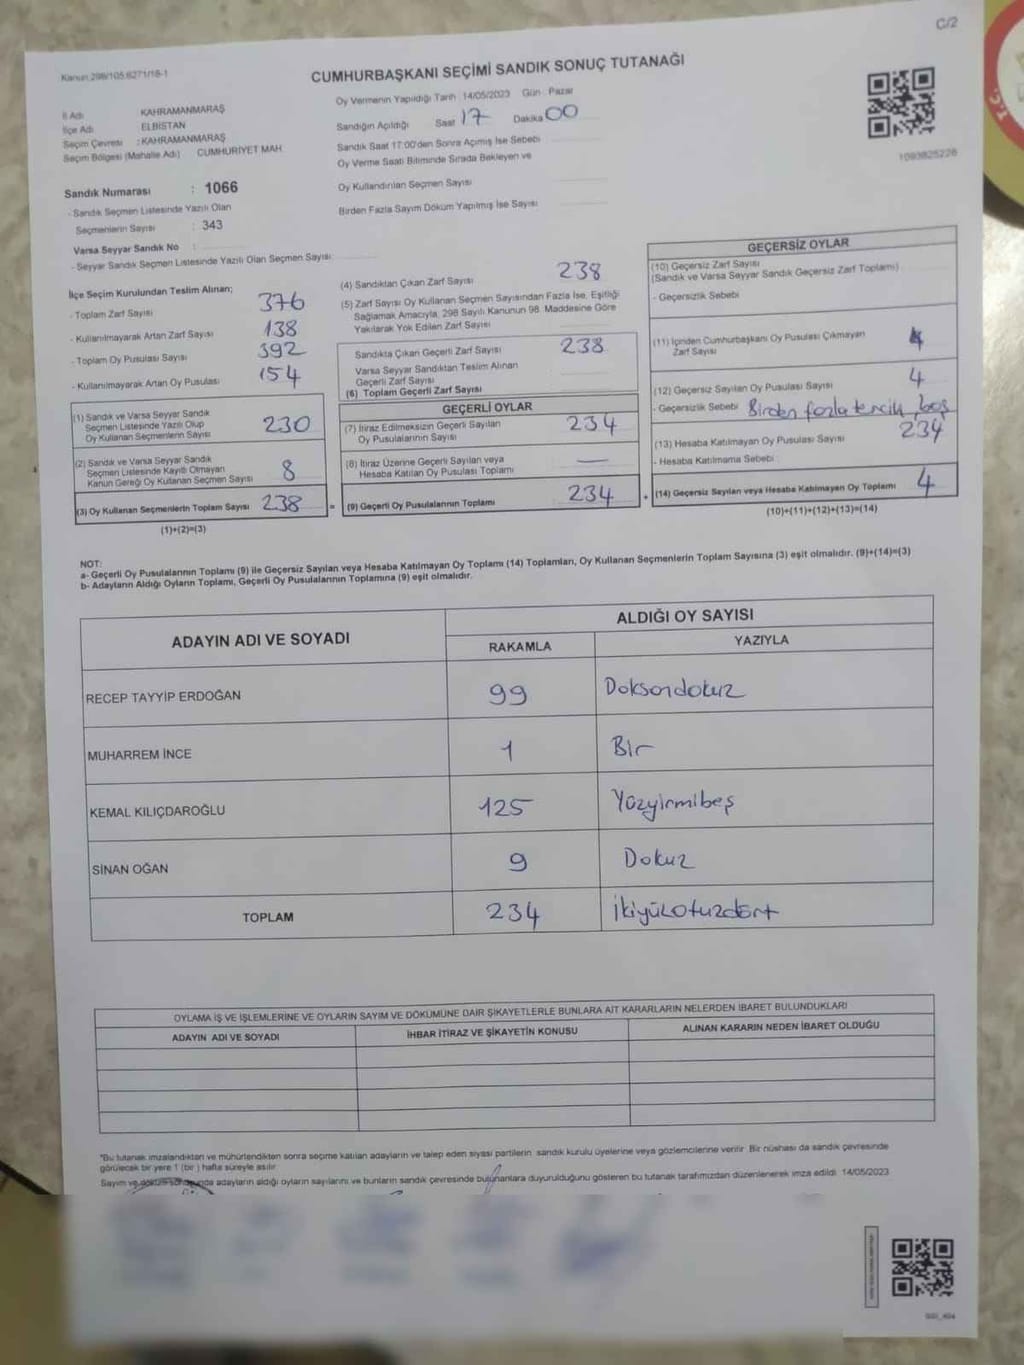 C/2
Kanun 298/105.6271/18-1
CUMHURBAŞKANI SEÇİMİ SANDIK SONUÇ TUTANAĞI
İl Adı KAHRAMANMARAŞ
İlçe Adı ELBİSTAN
Seçim Çevresi : KAHRAMANMARAŞ
Seçim Bölgesi (Mahalle Adı) CUMHURİYET MAH.
Oy Vermenin Yapıldığı Tarih : 14/05/2023 Gün : Pazar
Sandığın Açıldığı Saat 17 Dakika 00
Sandık Saat 17:00'den Sonra Açılmış İse Sebebi
Oy Verme Saati Bitiminde Sırada Bekleyen ve
Oy Kullandırılan Seçmen Sayısı
Birden Fazla Sayım Döküm Yapılmış İse Sayısı
1093825226
Sandık Numarası : 1066
- Sandık Seçmen Listesinde Yazılı Olan
Seçmenlerin Sayısı : 343
Varsa Seyyar Sandık No :
- Seyyar Sandık Seçmen Listesinde Yazılı Olan Seçmen Sayısı:
İlçe Seçim Kurulundan Teslim Alınan;
- Toplam Zarf Sayısı 376
- Kullanılmayarak Artan Zarf Sayısı 138
- Toplam Oy Pusulası Sayısı 392
- Kullanılmayarak Artan Oy Pusulası 154
(1) Sandık ve Varsa Seyyar Sandık
Seçmen Listesinde Yazılı Olup
Oy Kullanan Seçmenlerin Sayısı 230
(2) Sandık ve Varsa Seyyar Sandık
Seçmen Listesinde Kayıtlı Olmayan
Kanun Gereği Oy Kullanan Seçmen Sayısı 8
(3) Oy Kullanan Seçmenlerin Toplam Sayısı 238
(1)+(2)=(3)
(4) Sandıktan Çıkan Zarf Sayısı 238
(5) Zarf Sayısı Oy Kullanan Seçmen Sayısından Fazla İse, Eşitliği
Sağlamak Amacıyla, 298 Sayılı Kanunun 98. Maddesine Göre
Yakılarak Yok Edilen Zarf Sayısı
Sandıkta Çıkan Geçerli Zarf Sayısı 238
Varsa Seyyar Sandıktan Teslim Alınan
Geçerli Zarf Sayısı
(6) Toplam Geçerli Zarf Sayısı
GEÇERLİ OYLAR
(7) İtiraz Edilmeksizin Geçerli Sayılan
Oy Pusulalarının Sayısı 234
(8) İtiraz Üzerine Geçerli Sayılan veya
Hesaba Katılan Oy Pusulası Toplamı —
= (9) Geçerli Oy Pusulalarının Toplamı 234
GEÇERSİZ OYLAR
(10) Geçersiz Zarf Sayısı
(Sandık ve Varsa Seyyar Sandık Geçersiz Zarf Toplamı)
- Geçersizlik Sebebi
(11) İçinden Cumhurbaşkanı Oy Pusulası Çıkmayan
Zarf Sayısı
(12) Geçersiz Sayılan Oy Pusulası Sayısı 4
- Geçersizlik Sebebi Birden fazla tercih, boş
(13) Hesaba Katılmayan Oy Pusulası Sayısı 234
- Hesaba Katılmama Sebebi :
+ (14) Geçersiz Sayılan veya Hesaba Katılmayan Oy Toplamı 4
(10)+(11)+(12)+(13)=(14)
NOT:
a- Geçerli Oy Pusulalarının Toplamı (9) ile Geçersiz Sayılan veya Hesaba Katılmayan Oy Toplamı (14) Toplamları, Oy Kullanan Seçmenlerin Toplam Sayısına (3) eşit olmalıdır. (9)+(14)=(3)
b- Adayların Aldığı Oyların Toplamı, Geçerli Oy Pusulalarının Toplamına (9) eşit olmalıdır.
ADAYIN ADI VE SOYADI ALDIĞI OY SAYISI
RAKAMLA YAZIYLA
RECEP TAYYİP ERDOĞAN 99 Doksandokuz
MUHARREM İNCE 1 Bir
KEMAL KILIÇDAROĞLU 125 Yüzyirmibeş
SİNAN OĞAN 9 Dokuz
TOPLAM 234 İkiyüzotuzdört
OYLAMA İŞ VE İŞLEMLERİNE VE OYLARIN SAYIM VE DÖKÜMÜNE DAİR ŞİKAYETLERLE BUNLARA AİT KARARLARIN NELERDEN İBARET BULUNDUKLARI
ADAYIN ADI VE SOYADI İHBAR İTİRAZ VE ŞİKAYETİN KONUSU ALINAN KARARIN NEDEN İBARET OLDUĞU
*Bu tutanak imzalandıktan ve mühürlendikten sonra seçime katılan adayların ve talep eden siyasi partilerin sandık kurulu üyelerine veya gözlemcilerine verilir. Bir nüshası da sandık çevresinde
görülecek bir yere 1 (bir ) hafta süreyle asılır.
Sayım ve döküm sonunda adayların aldığı oyların sayılarını ve bunların sandık çevresinde bulunanlara duyurulduğunu gösteren bu tutanak tarafımızdan düzenlenerek imza edildi. 14/05/2023